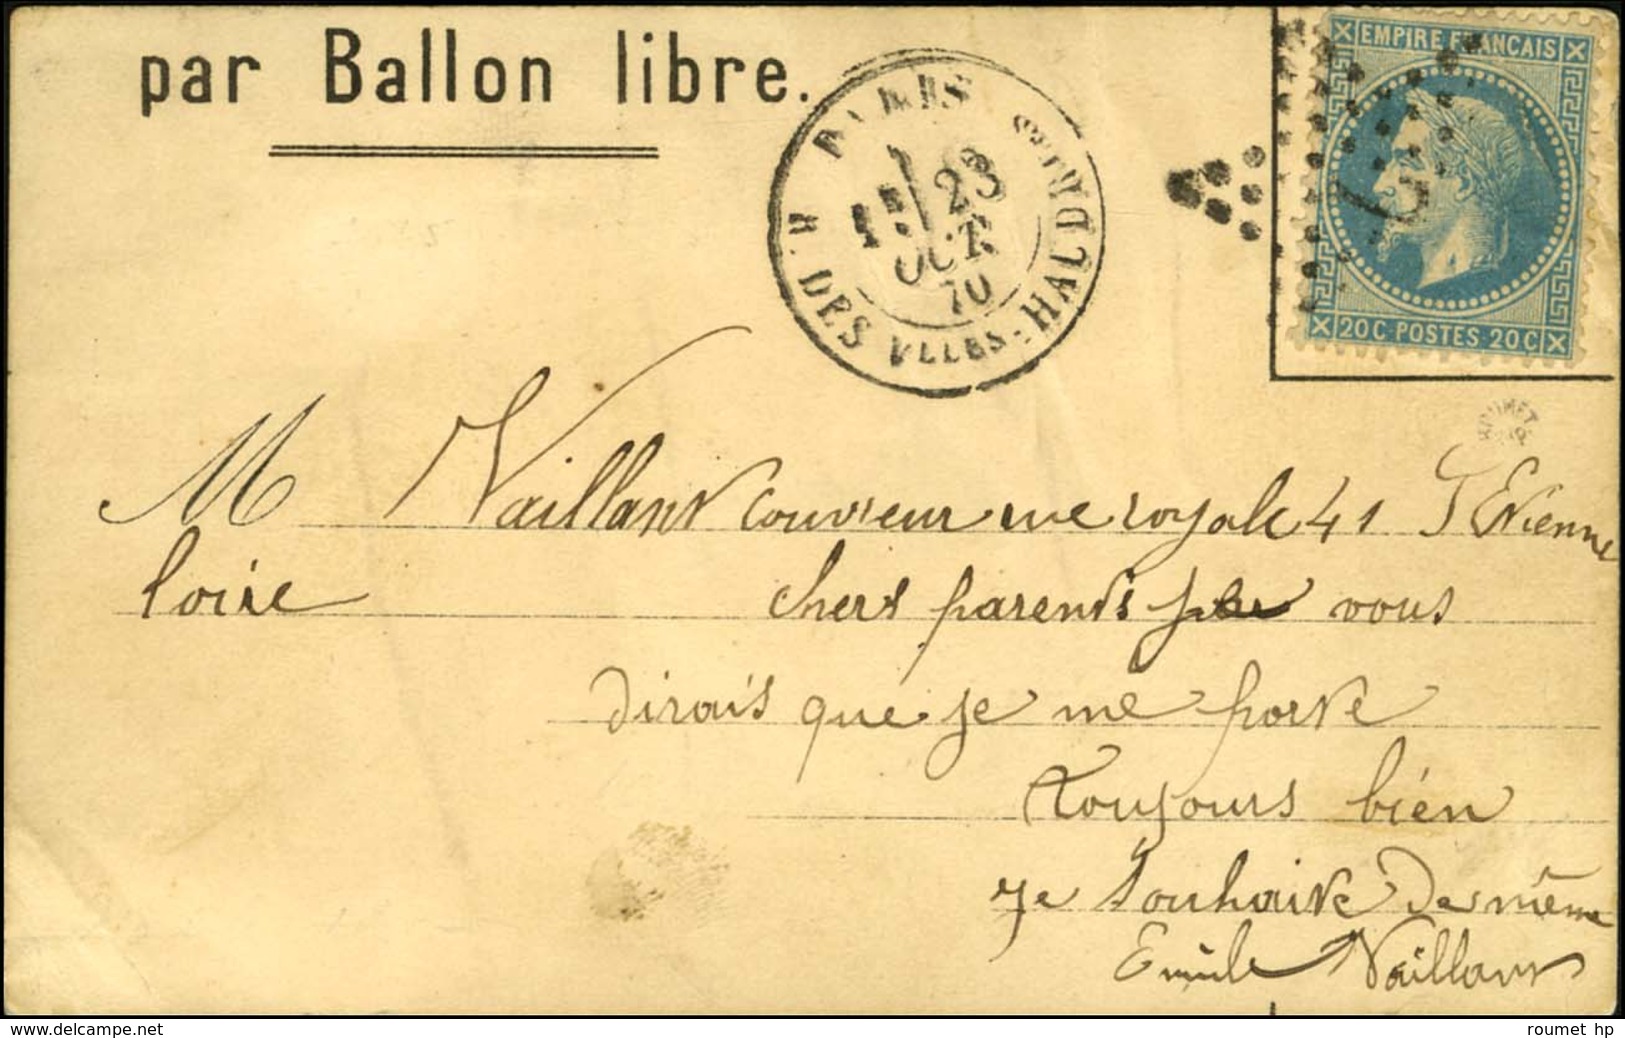 par Ballon libre.
PARIS
23
OCT.
70
R. DES VLLES-HAUDRtes
EMPIRE FRANCAIS
20C POSTES 20C
ROUMET
M Vaillant couvreur rue royale 41 St Etienne
loire chers parents je vous
dirais que je me porte
toujours bien
je souhaite de même
Emile Vaillant
roumet hp